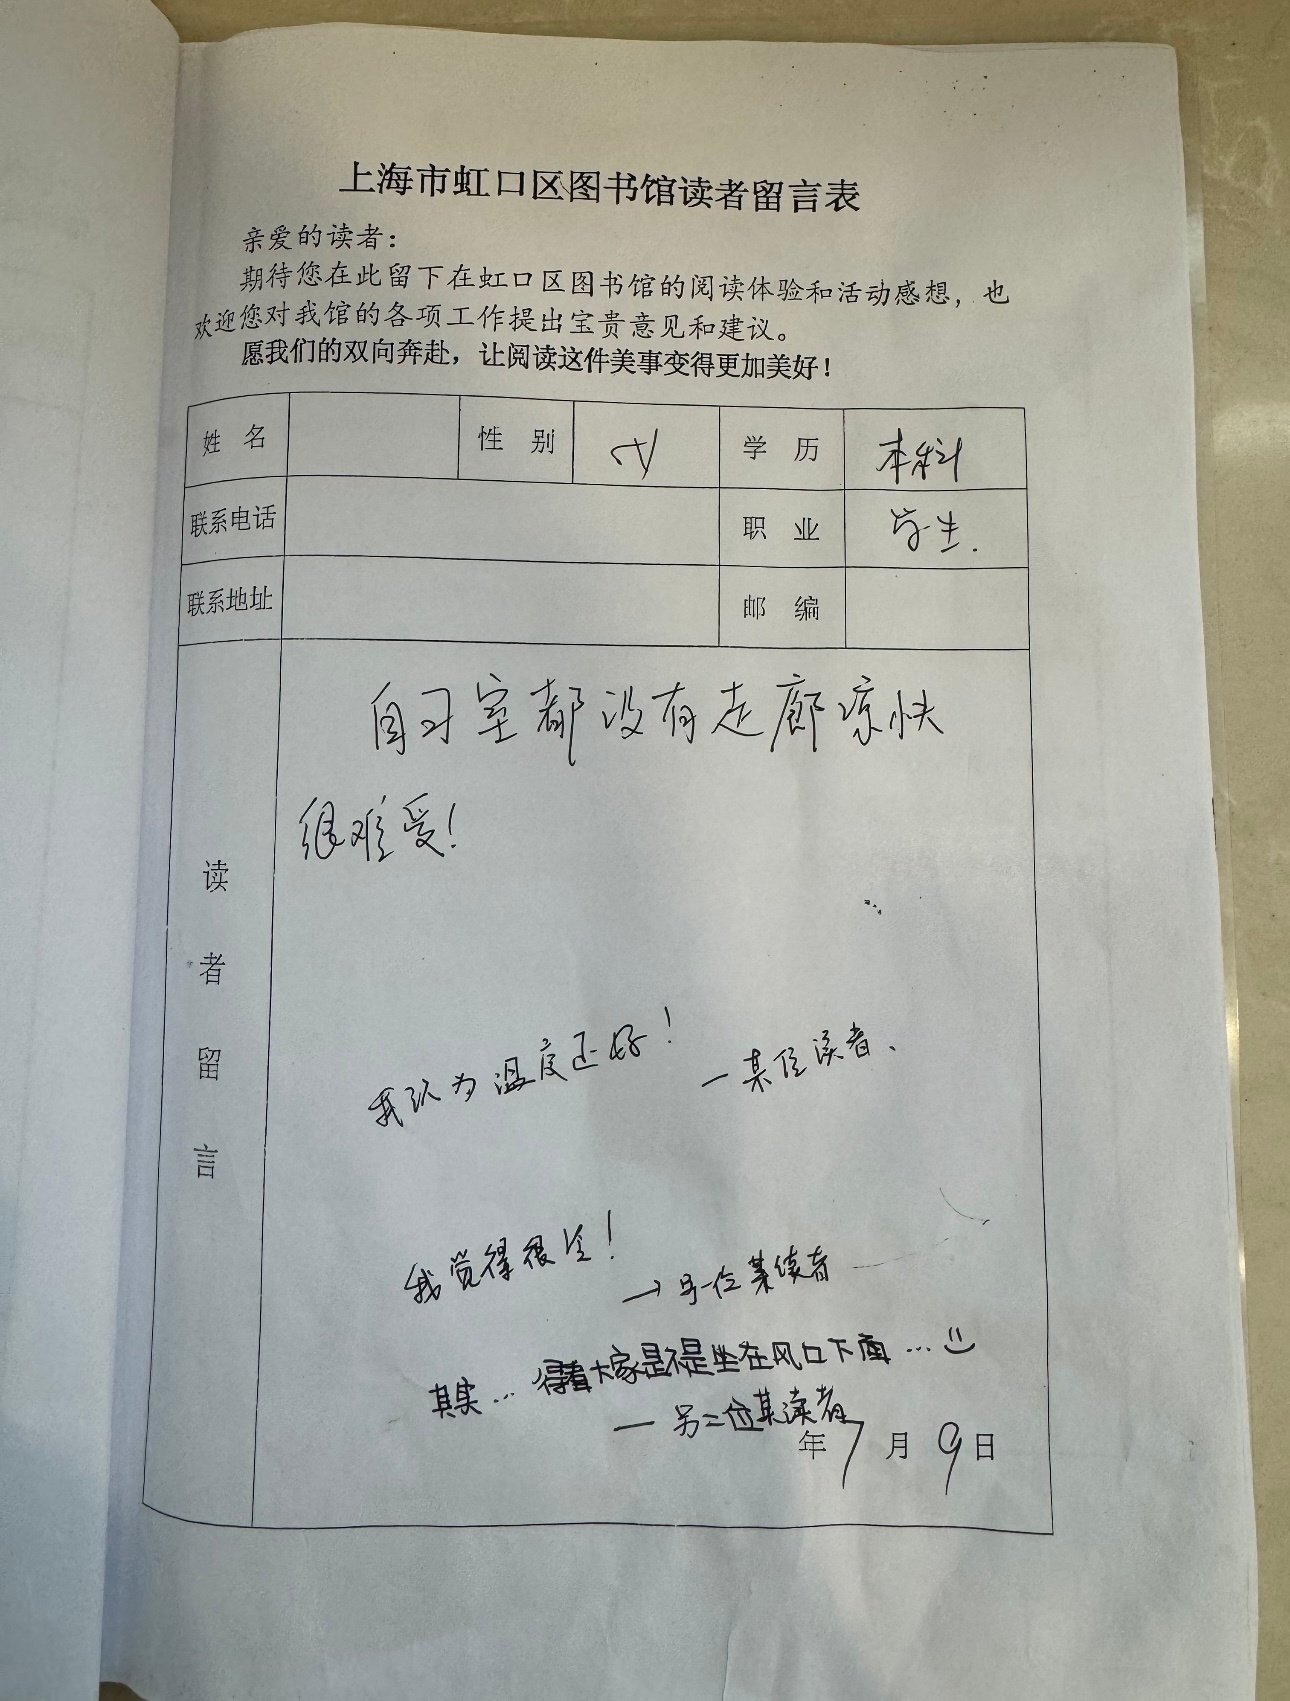 上海市虹口区图书馆读者留言表
亲爱的读者：
期待您在此留下在虹口区图书馆的阅读体验和活动感想，也
欢迎您对我馆的各项工作提出宝贵意见和建议。
愿我们的双向奔赴，让阅读这件美事变得更加美好！
姓 名 性 别 女 学 历 本科
联系电话 职 业 学生.
联系地址 邮 编
读者留言
自习室都没有走廊凉快
很难受！
我认为温度还好！
—某位读者、
我觉得很冷！
→另一位某读者
其实… 得看大家是不是坐在风口下面…
— 另二位某读者
年 7 月 9 日